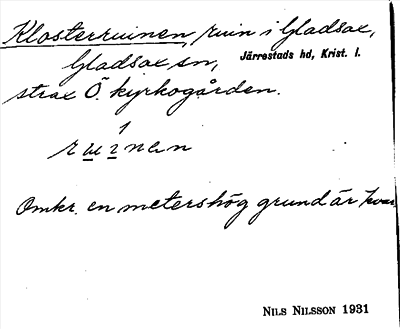 Klosterruinen, ruin i Gladsax,
Gladsax sn, Järrestads hd, Krist. l.
strax Ö. kyrkogården.
Omkr. en metershög grund är kvar.
NILS NILSSON 1931